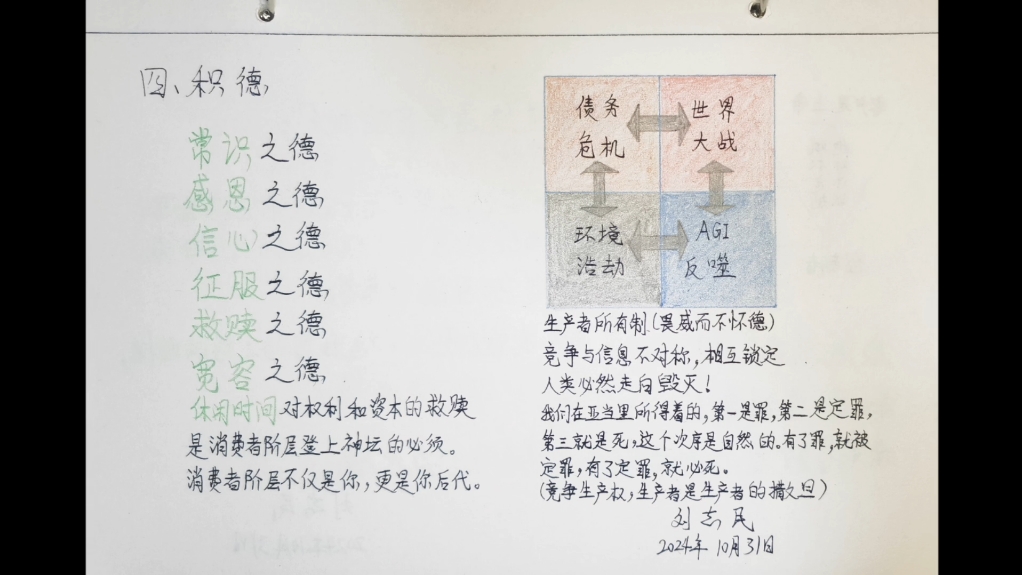 四、积德
常识之德
感恩之德
信心之德
征服之德
救赎之德
宽容之德
休闲时间对权利和资本的救赎
是消费者阶层登上神坛的必须。
消费者阶层不仅是你,更是你后代。
债务
危机
世界
大战
环境
浩劫
AGI
反噬
生产者所有制(畏威而不怀德)
竞争与信息不对称,相互锁定
人类必然走向毁灭!
我们在亚当里所得着的,第一是罪,第二是定罪,
第三就是死,这个次序是自然的。有了罪,就被
定罪,有了定罪,就必死。
(竞争生产权,生产者是生产者的撒旦)
刘志民
2024年10月31日